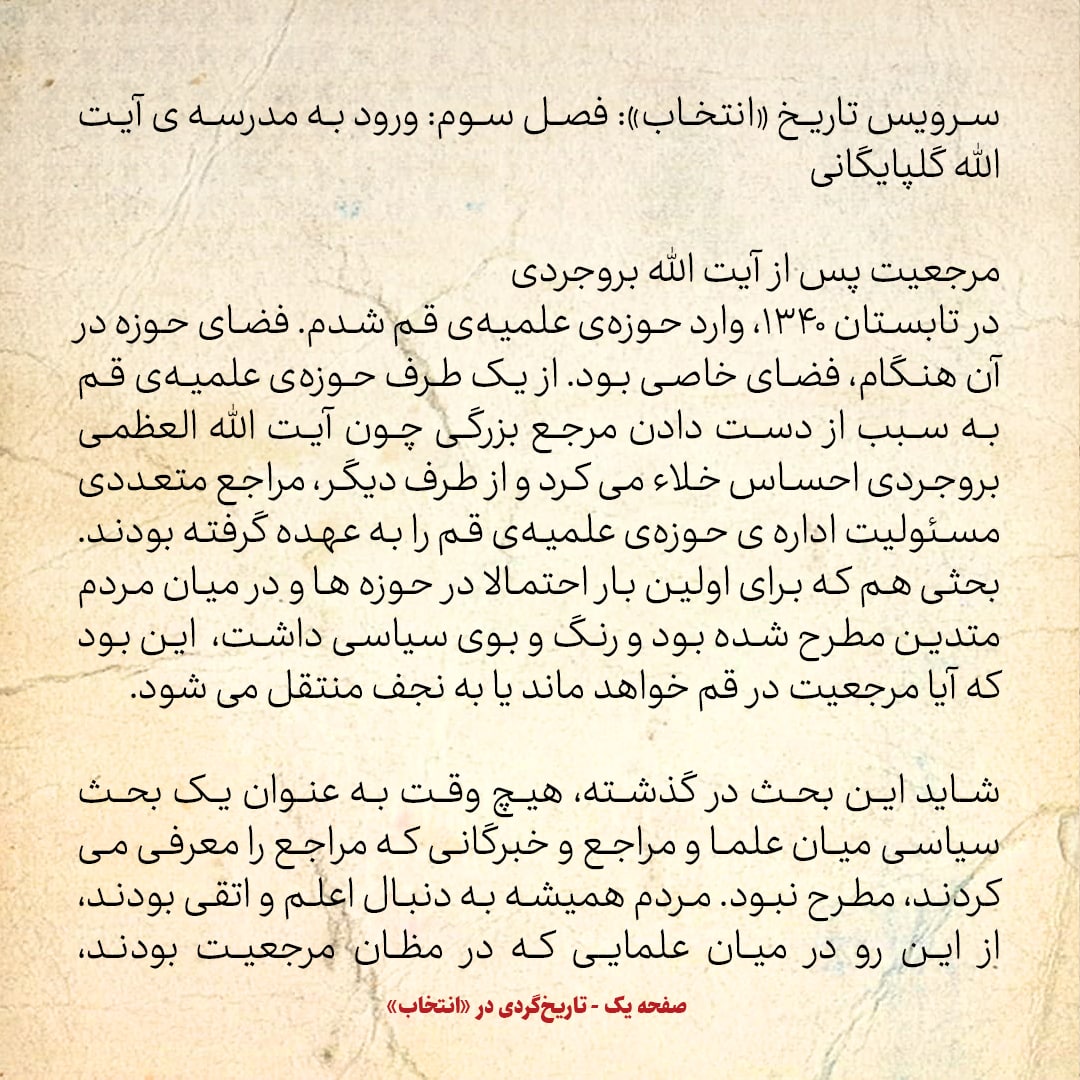 سرویس تاریخ «انتخاب»: فصل سوم: ورود به مدرسه ی آیت
الله گلپایگانی
مرجعیت پس از آیت الله بروجردی
در تابستان ۱۳۴۰، وارد حوزه‌ی علمیه‌ی قم شدم. فضای حوزه در
آن هنگام، فضای خاصی بود. از یک طرف حوزه‌ی علمیه‌ی قم
به سبب از دست دادن مرجع بزرگی چون آیت الله العظمی
بروجردی احساس خلاء می کرد و از طرف دیگر، مراجع متعددی
مسئولیت اداره ی حوزه‌ی علمیه‌ی قم را به عهده گرفته بودند.
بحثی هم که برای اولین بار احتمالا در حوزه ها و در میان مردم
متدین مطرح شده بود و رنگ و بوی سیاسی داشت، این بود
که آیا مرجعیت در قم خواهد ماند یا به نجف منتقل می شود.
شاید این بحث در گذشته، هیچ وقت به عنوان یک بحث
سیاسی میان علما و مراجع و خبرگانی که مراجع را معرفی می
کردند، مطرح نبود. مردم همیشه به دنبال اعلم و اتقی بودند،
از این رو در میان علمایی که در مظان مرجعیت بودند،
صفحه یک - تاریخ‌گردی در «انتخاب»